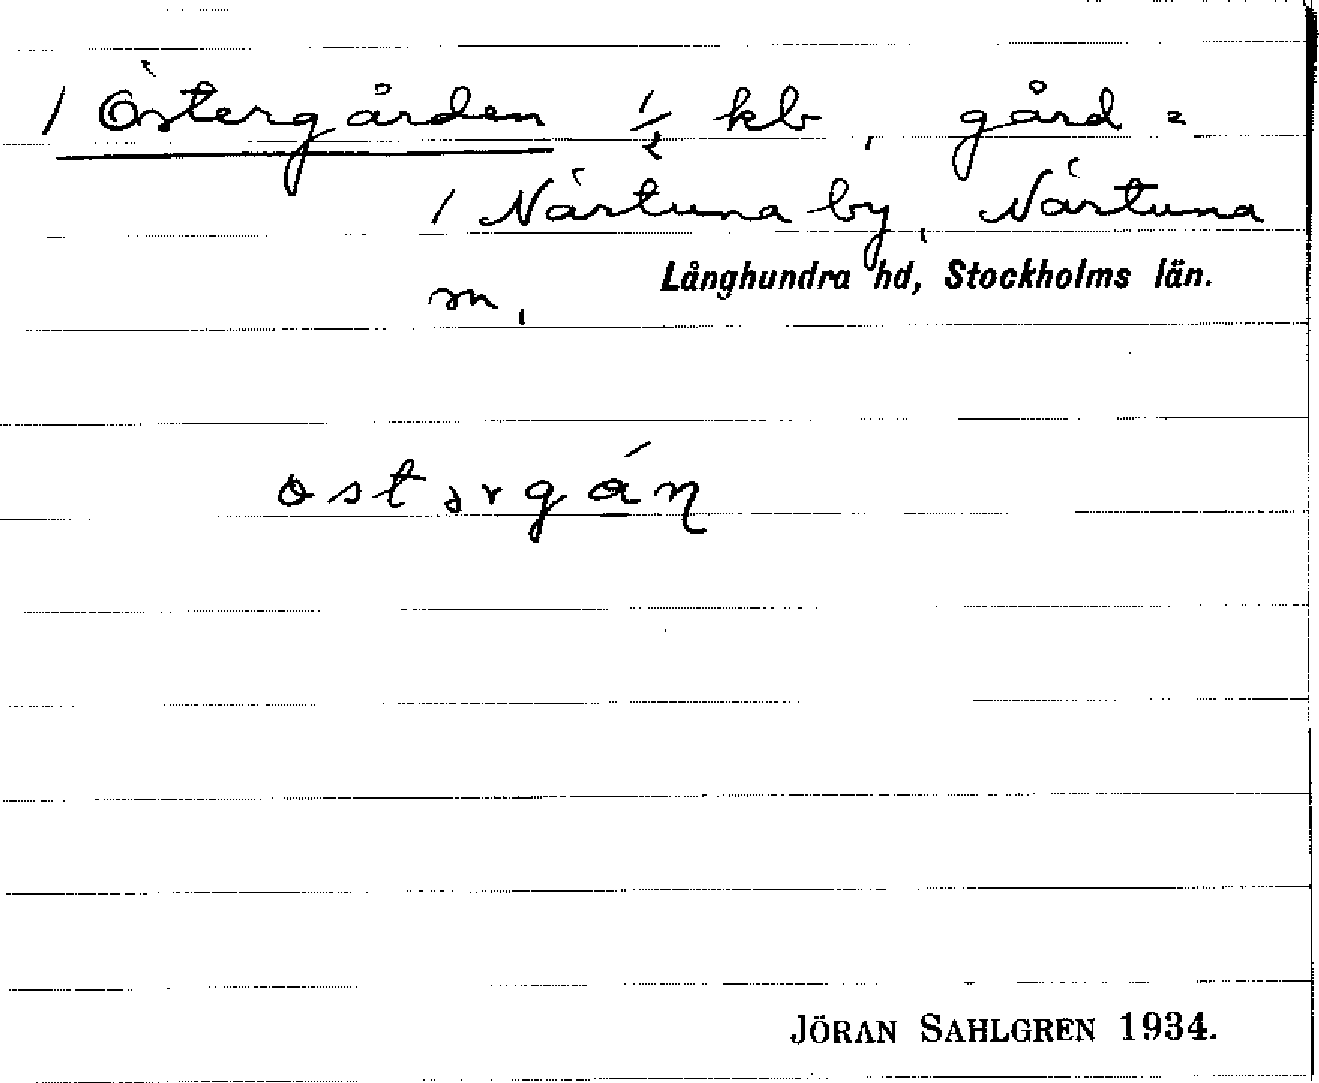 1 Östergården ½ kb, gård =
1 Närtuna by, Närtuna
sn,
Långhundra hd, Stockholms län.
ostərgán
JÖRAN SAHLGREN 1934.